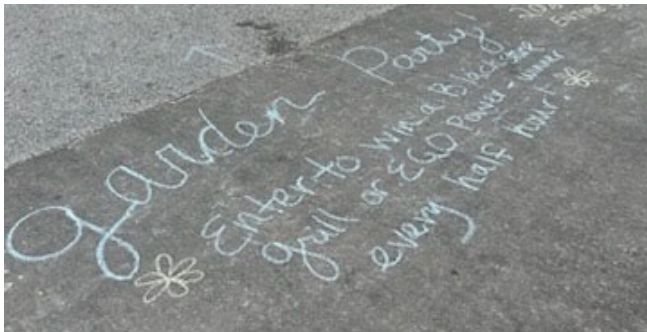 garden Party!
Enter to win a Blackstone
grill or EGO Power - winner
every half hour!
20%